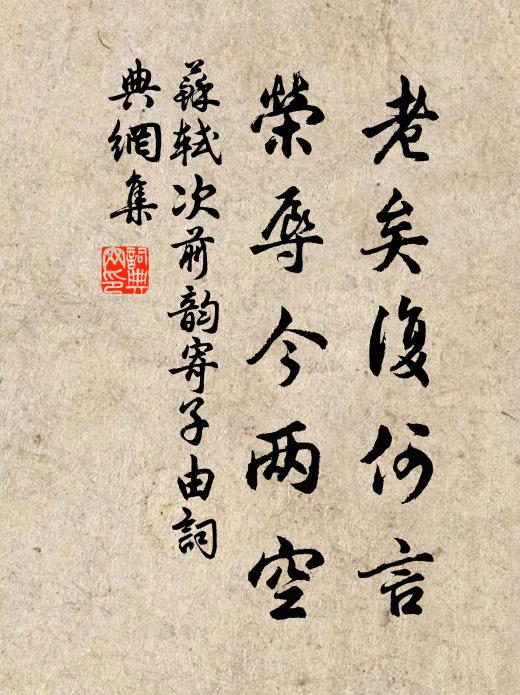 老矣復何言
榮辱今两空
蘇軾次前韵寄子由詞
典網集
詞典網印